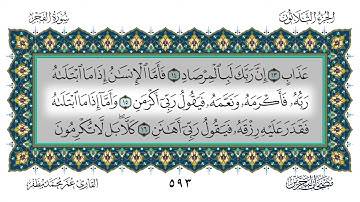 الجزء الثلاثون
سورة الفجر
عَذَابٍ ١٣ إِنَّ رَبَّكَ لَبِالْمِرْصَادِ ١٤ فَأَمَّا الْإِنسَانُ إِذَا مَا ابْتَلَاهُ
رَبُّهُ فَأَكْرَمَهُ وَنَعَّمَهُ فَيَقُولُ رَبِّي أَكْرَمَنِ ١٥ وَأَمَّا إِذَا مَا ابْتَلَاهُ
فَقَدَرَ عَلَيْهِ رِزْقَهُ فَيَقُولُ رَبِّي أَهَانَنِ ١٦ كَلَّا بَل لَّا تُكْرِمُونَ
القارئ عمر محمد مظفر
٥٩٣